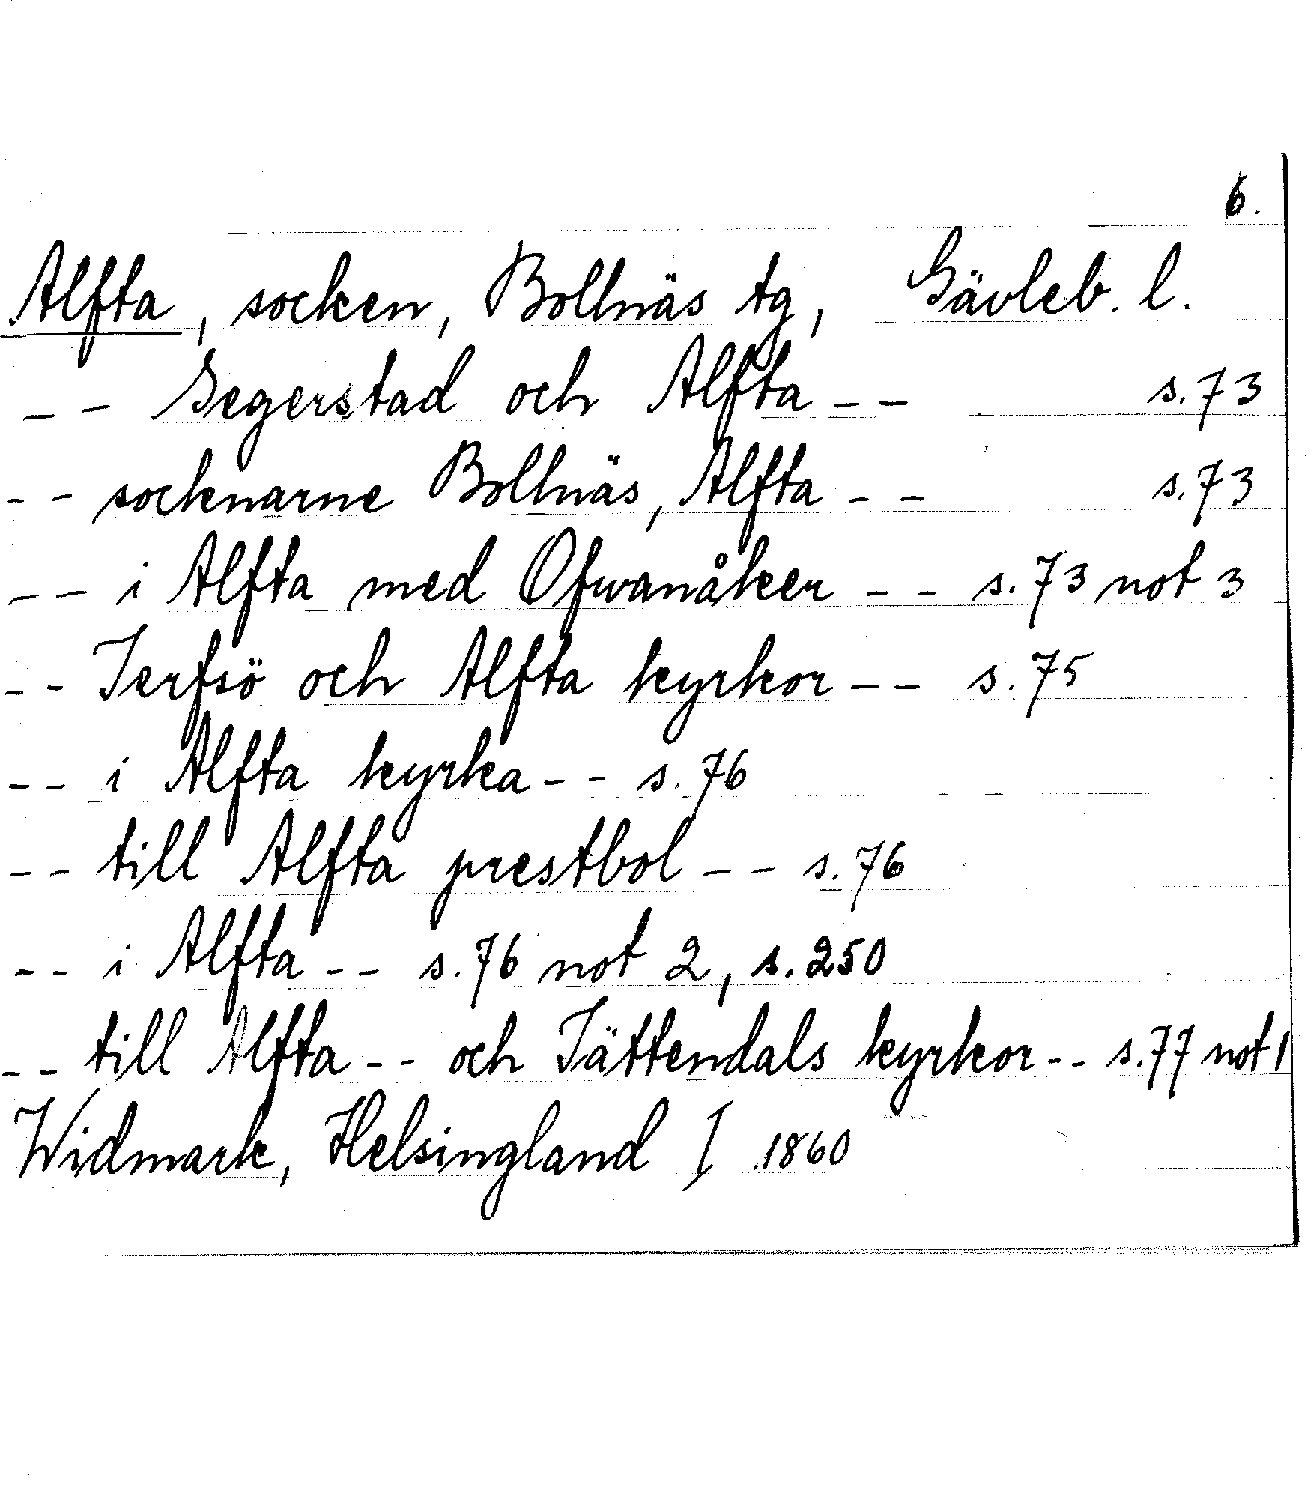 6.
Alfta, socken, Bollnäs tg, Gävleb. l.
-- Segerstad och Alfta -- s. 73
-- socknarne Bollnäs, Alfta -- s. 73
-- i Alfta med Ofwanåker -- s. 73 not 3
-- Jerfsö och Alfta kyrkor -- s. 75
-- i Alfta kyrka -- s. 76
-- till Alfta prestbol -- s. 76
-- i Alfta -- s. 76 not 2, s. 250
-- till Alfta -- och Jättendals kyrkor -- s. 77 not 1
Widmark, Helsingland I 1860